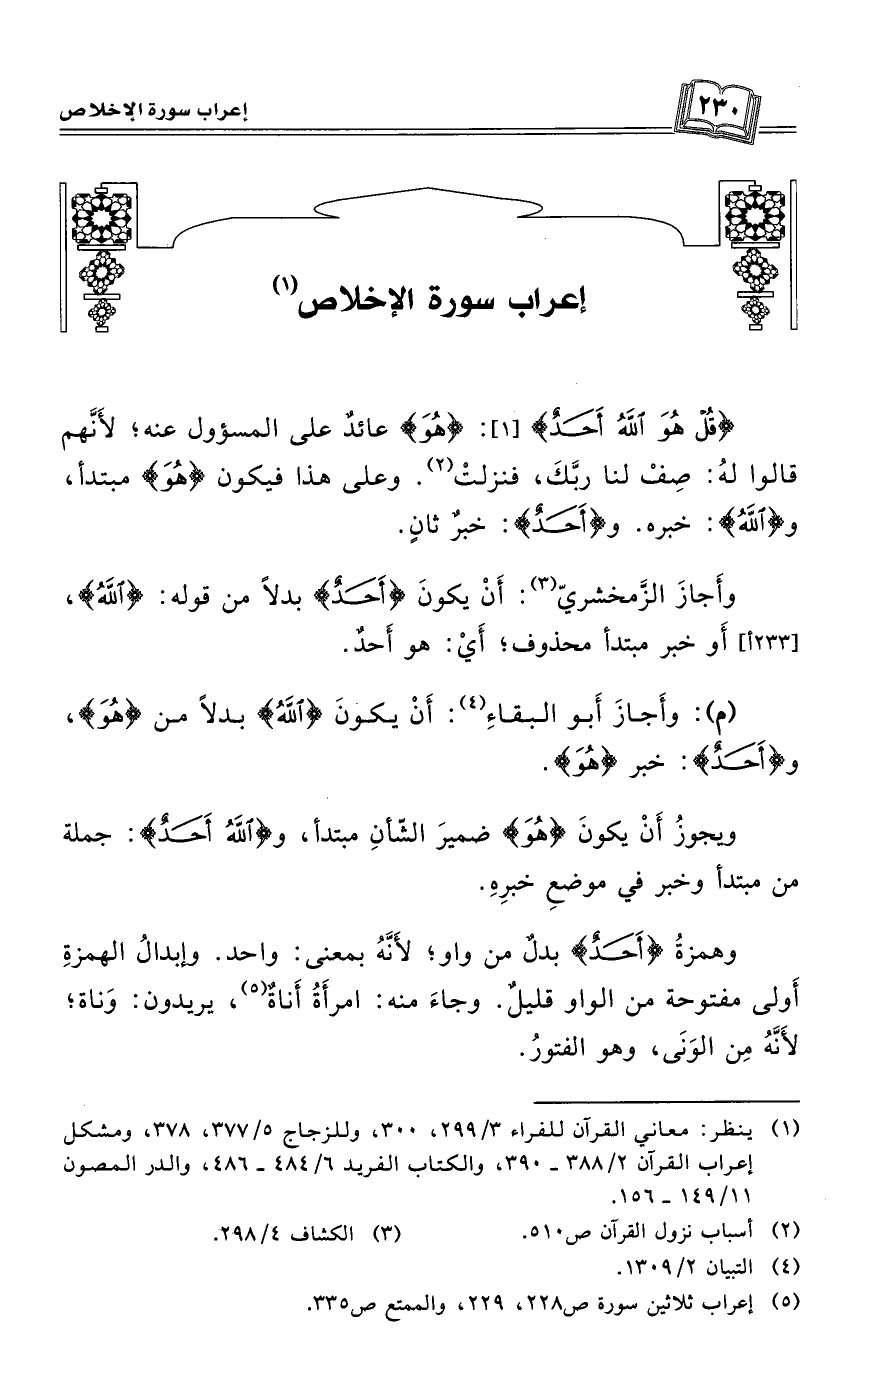 ٢٣٠
إعراب سورة الإخلاص
إعراب سورة الإخلاص(١)
﴿قُلْ هُوَ ٱللَّهُ أَحَدٌ﴾ [١]: ﴿هُوَ﴾ عائدٌ على المسؤول عنه؛ لأَنَّهم
قالوا لهُ: صِفْ لنا ربَّكَ، فنزلتْ(٢). وعلى هذا فيكون ﴿هُوَ﴾ مبتدأ،
و﴿ٱللَّهُ﴾: خبره. و﴿أَحَدٌ﴾: خبرٌ ثانٍ.
وأَجازَ الزَّمخشريّ(٣): أَنْ يكونَ ﴿أَحَدٌ﴾ بدلاً من قوله: ﴿ٱللَّهُ﴾،
[٢٣٣أ] أَو خبر مبتدأ محذوف؛ أَيْ: هو أَحدٌ.
(م): وأَجازَ أَبو البقاءِ(٤): أَنْ يكونَ ﴿ٱللَّهُ﴾ بدلاً من ﴿هُوَ﴾،
و﴿أَحَدٌ﴾: خبر ﴿هُوَ﴾.
ويجوزُ أَنْ يكونَ ﴿هُوَ﴾ ضميرَ الشّأنِ مبتدأ، و﴿ٱللَّهُ أَحَدٌ﴾: جملة
من مبتدأ وخبر في موضعِ خبرِهِ.
وهمزةُ ﴿أَحَدٌ﴾ بدلٌ من واو؛ لأَنَّهُ بمعنى: واحد. وإبدالُ الهمزةِ
أَولى مفتوحة من الواو قليلٌ. وجاءَ منه: امرأَةُ أَناةٌ(٥)، يريدون: وَناة؛
لأَنَّهُ مِن الوَنَى، وهو الفتورُ.
(١) ينظر: معاني القرآن للفراء ٣/٢٩٩، ٣٠٠، وللزجاج ٥/٣٧٧، ٣٧٨، ومشكل
إعراب القرآن ٢/٣٨٨ ـ ٣٩٠، والكتاب الفريد ٦/٤٨٤ ـ ٤٨٦، والدر المصون
١١/١٤٩ ـ ١٥٦.
(٢) أسباب نزول القرآن ص٥١٠. (٣) الكشاف ٤/٢٩٨.
(٤) التبيان ٢/١٣٠٩.
(٥) إعراب ثلاثين سورة ص٢٢٨، ٢٢٩، والممتع ص٣٣٥.